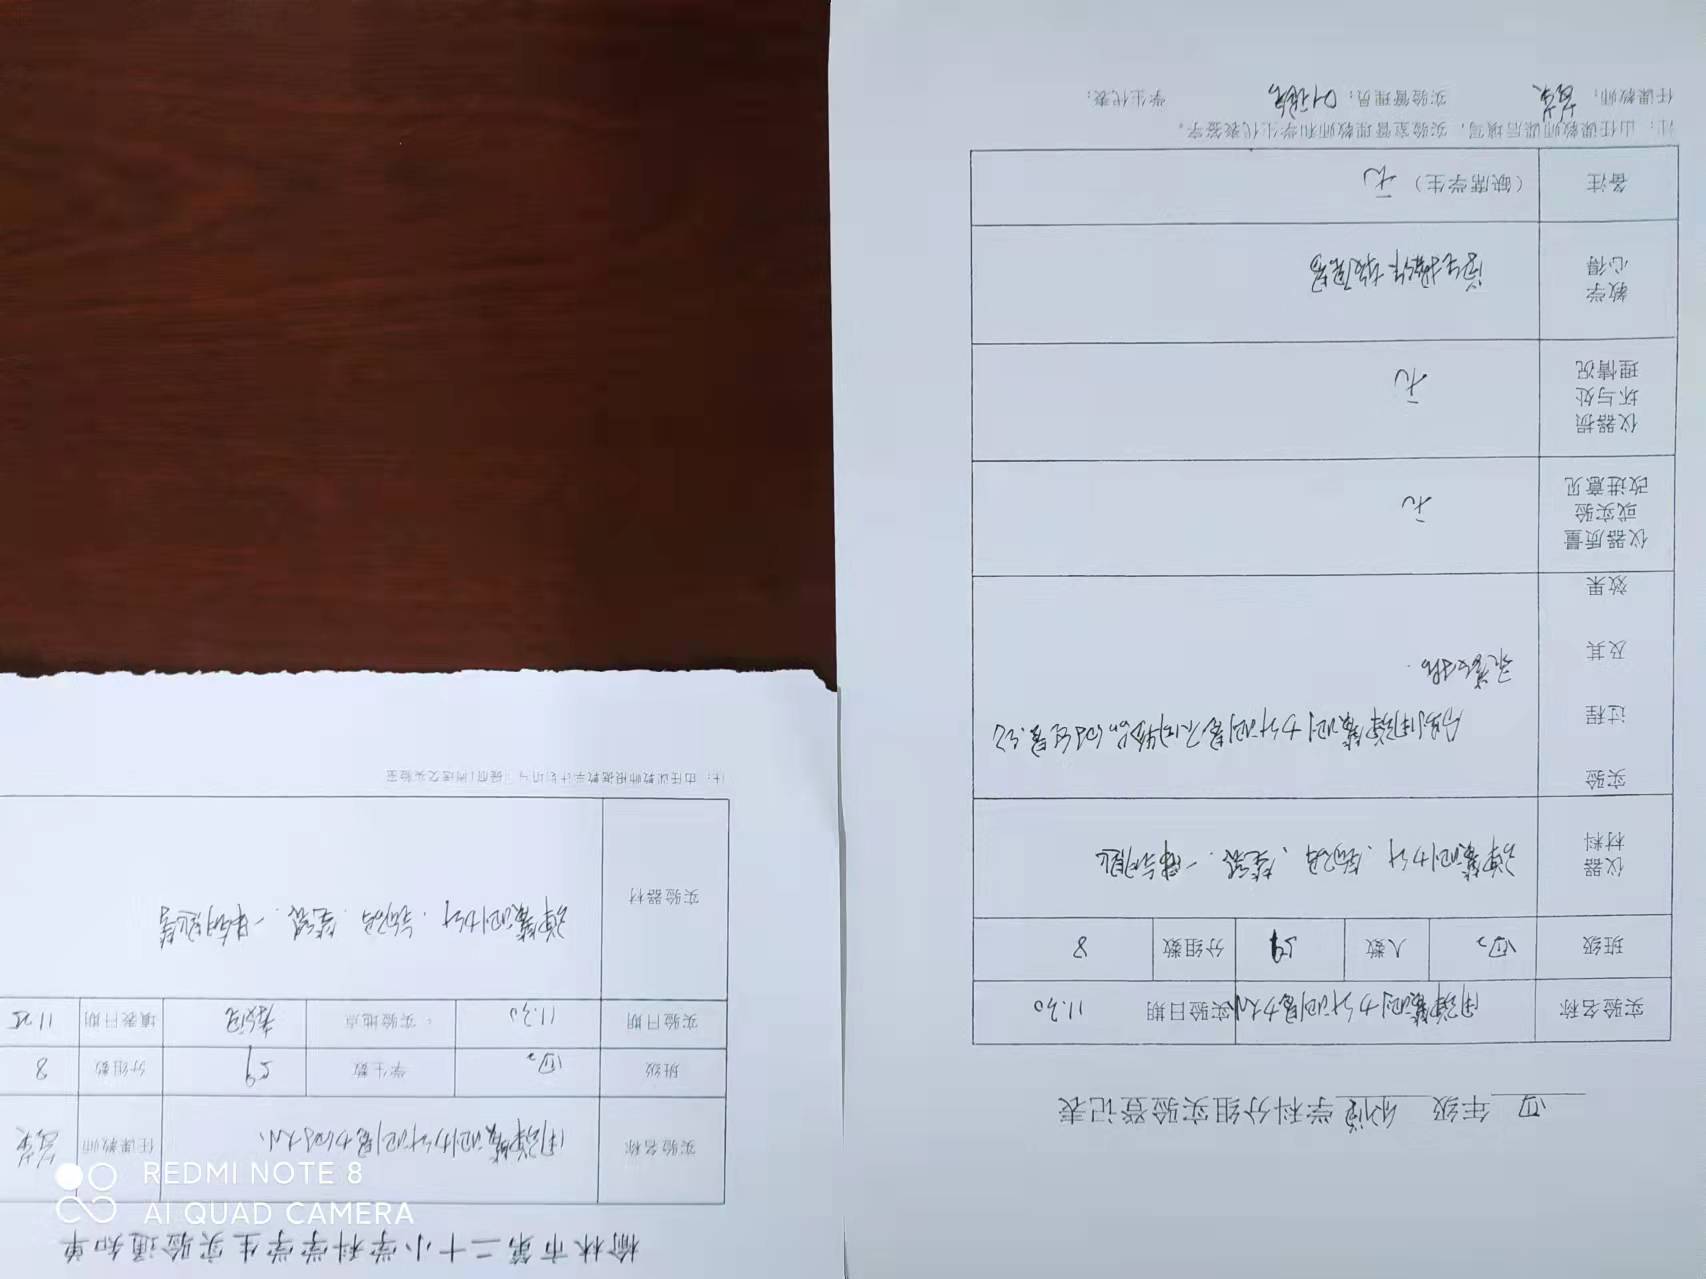 四 年级 科学 学科分组实验登记表
实验名称 用弹簧测力计测量力大小 实验日期 11.30
班级 四2 人数 59 分组数 8
仪器材料 弹簧测力计、钩码、
一体机
实验过程及其效果 分别用弹簧测力计测量不同物品的重量,
仪器质量或实验改进意见 无
仪器损坏与处理情况 无
教学心得 学生操作
备注 (缺席学生) 无
注:由任课教师课后填写,实验室管理教师和学生代表签字。
任课教师: 实验管理员: 学生代表:
榆林市第二十小学科学学生实验通知单
实验名称 用弹簧测力计测量力的大小 任课教师
班级 四2 学生数 59 分组数 8
实验日期 11.30 实验地点 填表日期 11.25
实验器材 弹簧测力计、钩码、
一体机
REDMI NOTE 8
AI QUAD CAMERA